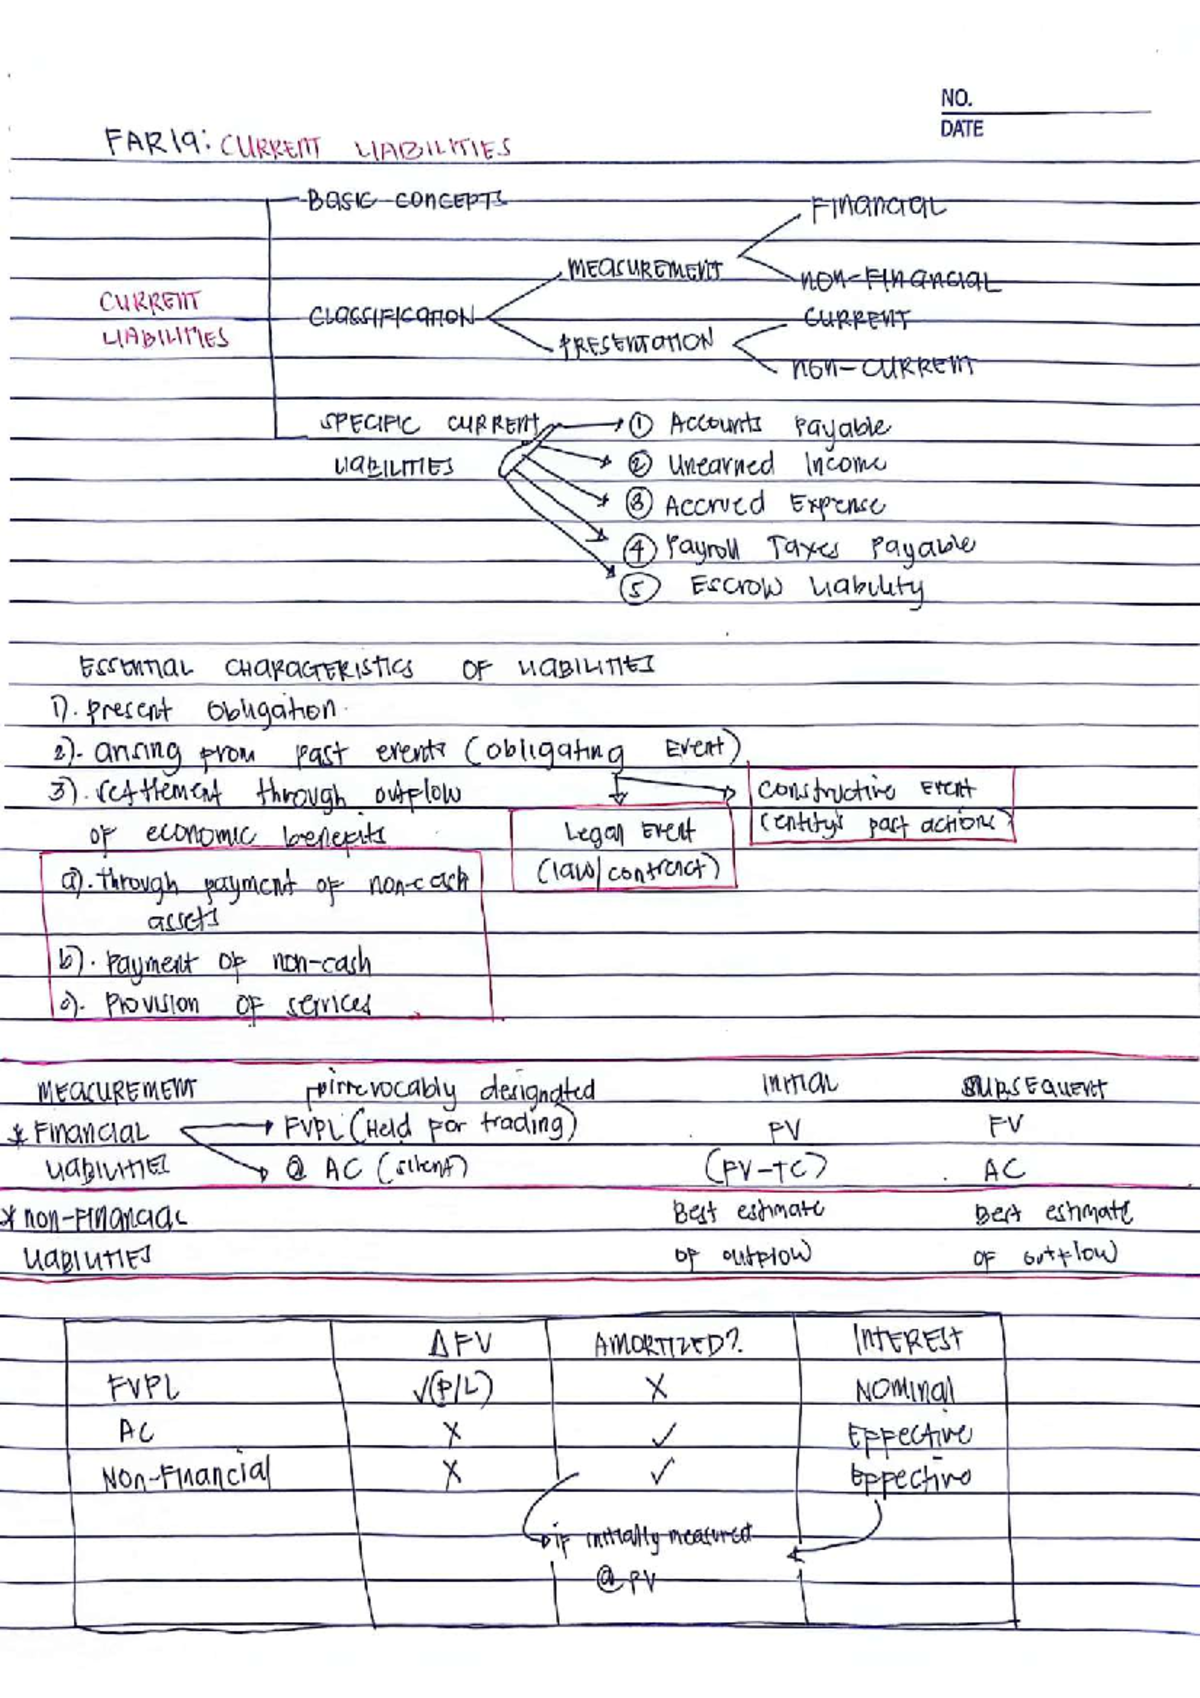 NO.
DATE
FAR19: CURRENT LIABILITIES
BASIC CONCEPTS
FINANCIAL
MEASUREMENT
NON-FINANCIAL
CURRENT
LIABILITIES
CLASSIFICATION
CURRENT
PRESENTATION
NON-CURRENT
SPECIFIC CURRENT
LIABILITIES
① Accounts Payable
② Unearned Income
③ Accrued Expense
④ Payroll Taxes Payable
⑤ Escrow Liability
ESSENTIAL CHARACTERISTICS OF LIABILITIES
1). Present Obligation.
2). arising from past events (obligating Event)
3). settlement through outflow
of economic benefits
Constructive Event
(entity's past actions)
Legal Event
(law/contract)
a). through payment of non-cash
assets
b). payment of non-cash
c). Provision of services
MEASUREMENT irrevocably designated INITIAL SUBSEQUENT
* Financial FVPL (Held for trading) FV FV
LIABILITIES @ AC (silent) (FV-TC) AC
* NON-FINANCIAL Best estimate Best estimate
LIABILITIES of outflow of outflow
Δ FV AMORTIZED? INTEREST
FVPL √(P/L) X NOMINAL
AC X ✓ Effective
Non-Financial X ✓ Effective
if initially measured
@ PV